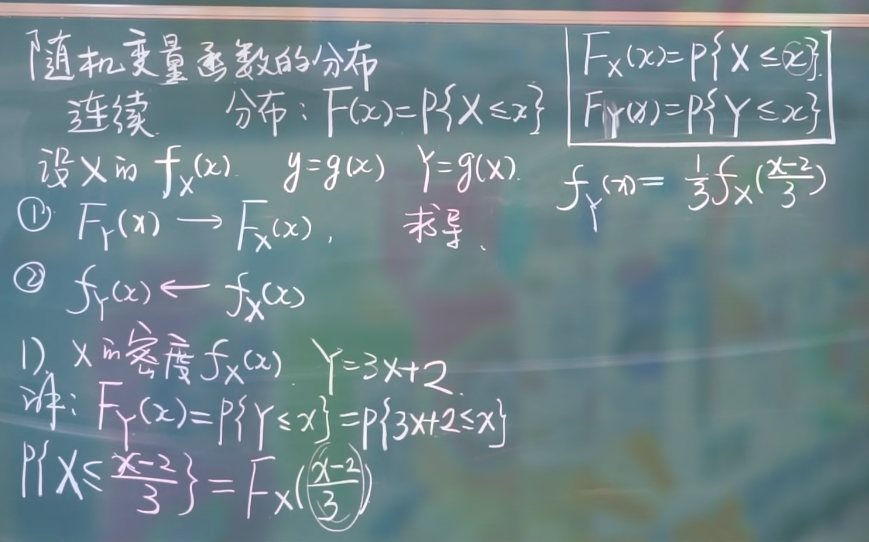 随机变量函数的分布
连续 分布: F(x)=P{X≤x}
F_X(x)=P{X≤x}
F_Y(x)=P{Y≤x}
设X的 f_X(x). y=g(x) Y=g(X).
f_Y(x)= 1/3 f_X((x-2)/3)
① F_Y(x) → F_X(x), 求导、
② f_Y(x) ← f_X(x)
1). X的密度 f_X(x). Y=3X+2.
解: F_Y(x)=P{Y≤x}=P{3X+2≤x}
P{X≤(x-2)/3}=F_X((x-2)/3)